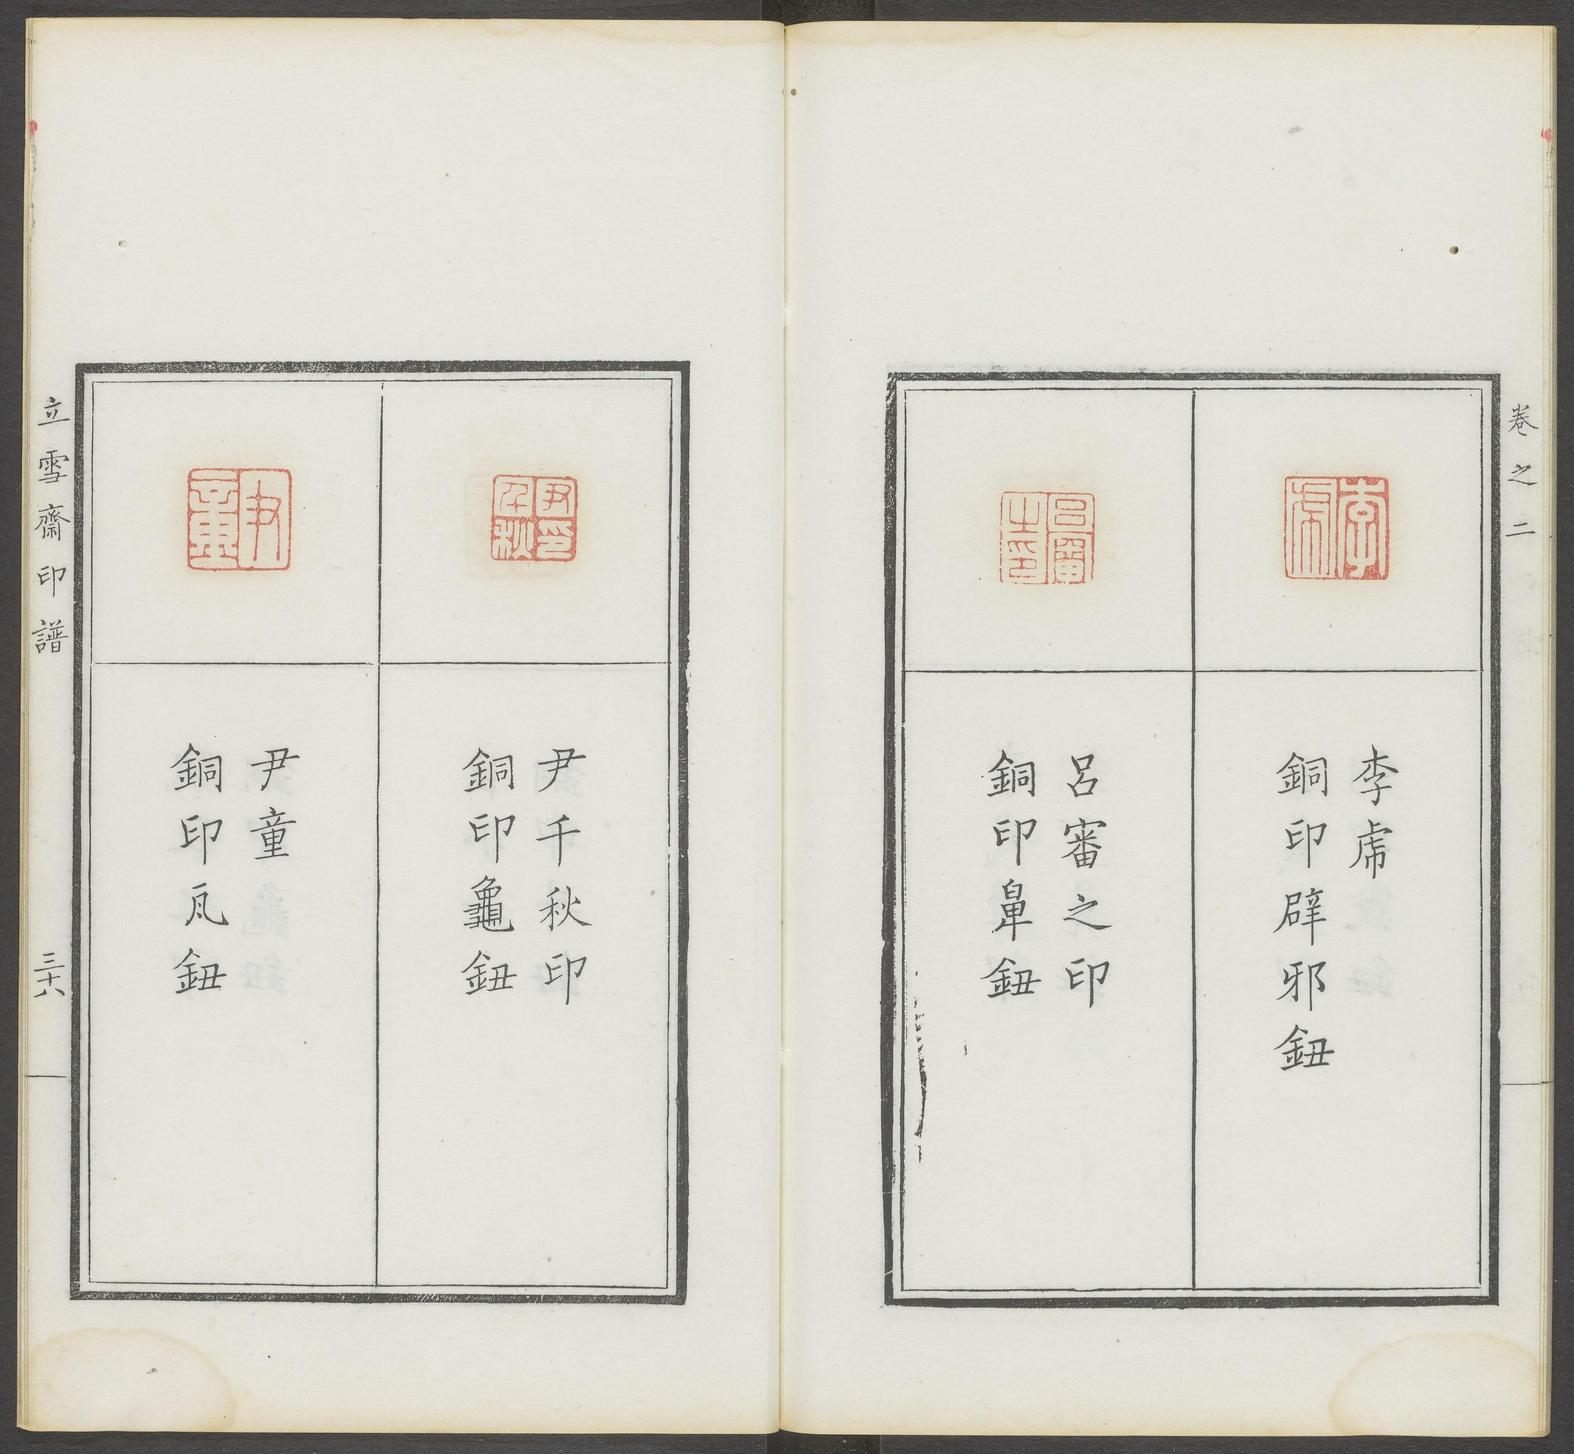 卷之二
李虎
銅印辟邪鈕
呂審之印
銅印鼻鈕
尹千秋印
銅印龜鈕
尹童
銅印瓦鈕
立雪齋印譜
三十八